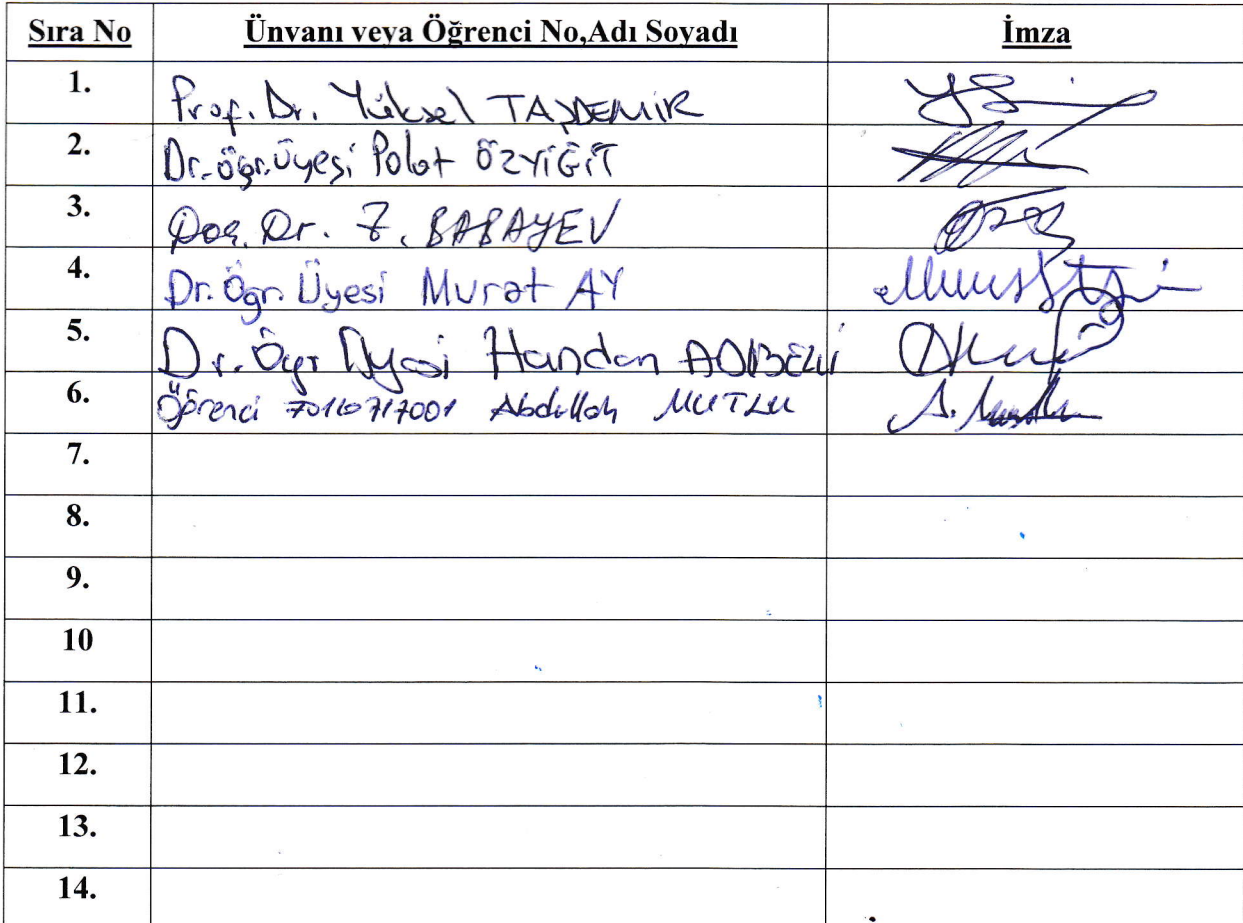 Sıra No Ünvanı veya Öğrenci No,Adı Soyadı İmza
1. Prof. Dr. Yüksel TAŞDEMİR
2. Dr. öğr. üyesi Polat ÖZYİĞİT
3. Doç. Dr. Z. BABAYEV
4. Dr. Öğr. Üyesi Murat AY
5. Dr. Öğr Üyesi Handan
6. Öğrenci 70110717001 Abdullah MUTLU
7.
8.
9.
10
11.
12.
13.
14.